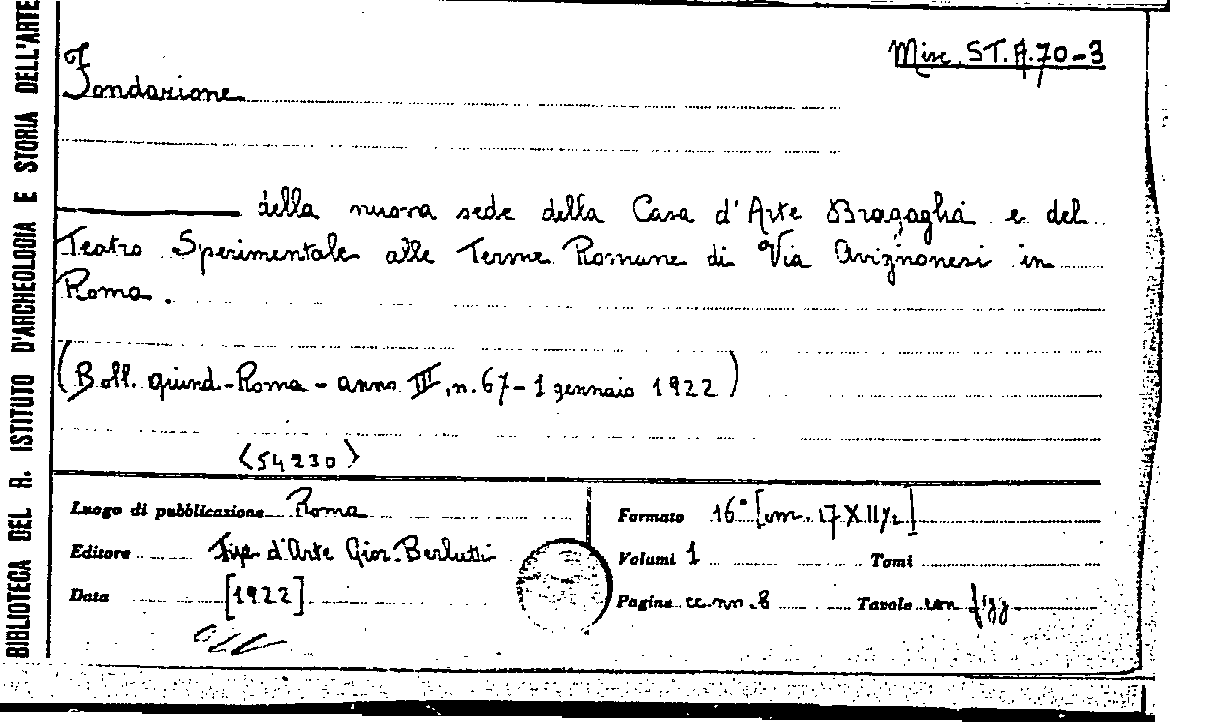 BIBLIOTECA DEL R. ISTITUTO D'ARCHEOLOGIA E STORIA DELL'ARTE
Misc. ST. A.70-3
Fondazione
della nuova sede della Casa d'Arte Bragaglia e del
Teatro Sperimentale alle Terme Romane di Via Avignonesi in
Roma.
(Boll. quind.-Roma - anno III, n. 67 - 1 gennaio 1922)
(54230)
Luogo di pubblicazione Roma
Formato 16° [cm. 17 X 11½]
Editore Tip. d'Arte Gior. Berlutti
Volumi 1 Tomi
Data [1922]
Pagine cc. nn. 8 Tavole con figg